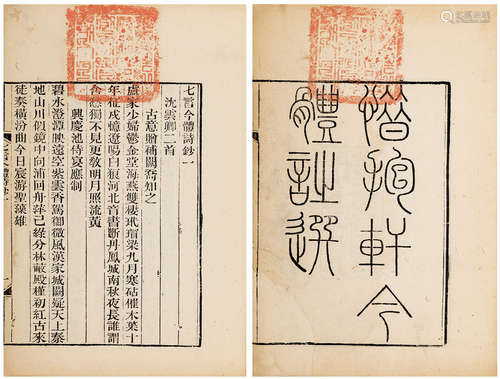 惜抱軒今
體詩選
七言今體詩鈔一
沈雲卿二首
古意贈補闕喬知之
盧家少婦鬱金堂海燕雙棲玳瑁梁九月寒砧催木葉十
年征戍憶遼陽白狼河北音書斷丹鳳城南秋夜長誰謂
含愁獨不見更教明月照流黃
興慶池侍宴應制
碧水澄潭映遠空紫雲香駕御微風漢家城闕疑天上秦
地山川似鏡中向浦回舟萍已綠分林蔽殿槿初紅古來
徒奏橫汾曲今日宸游聖藻雄